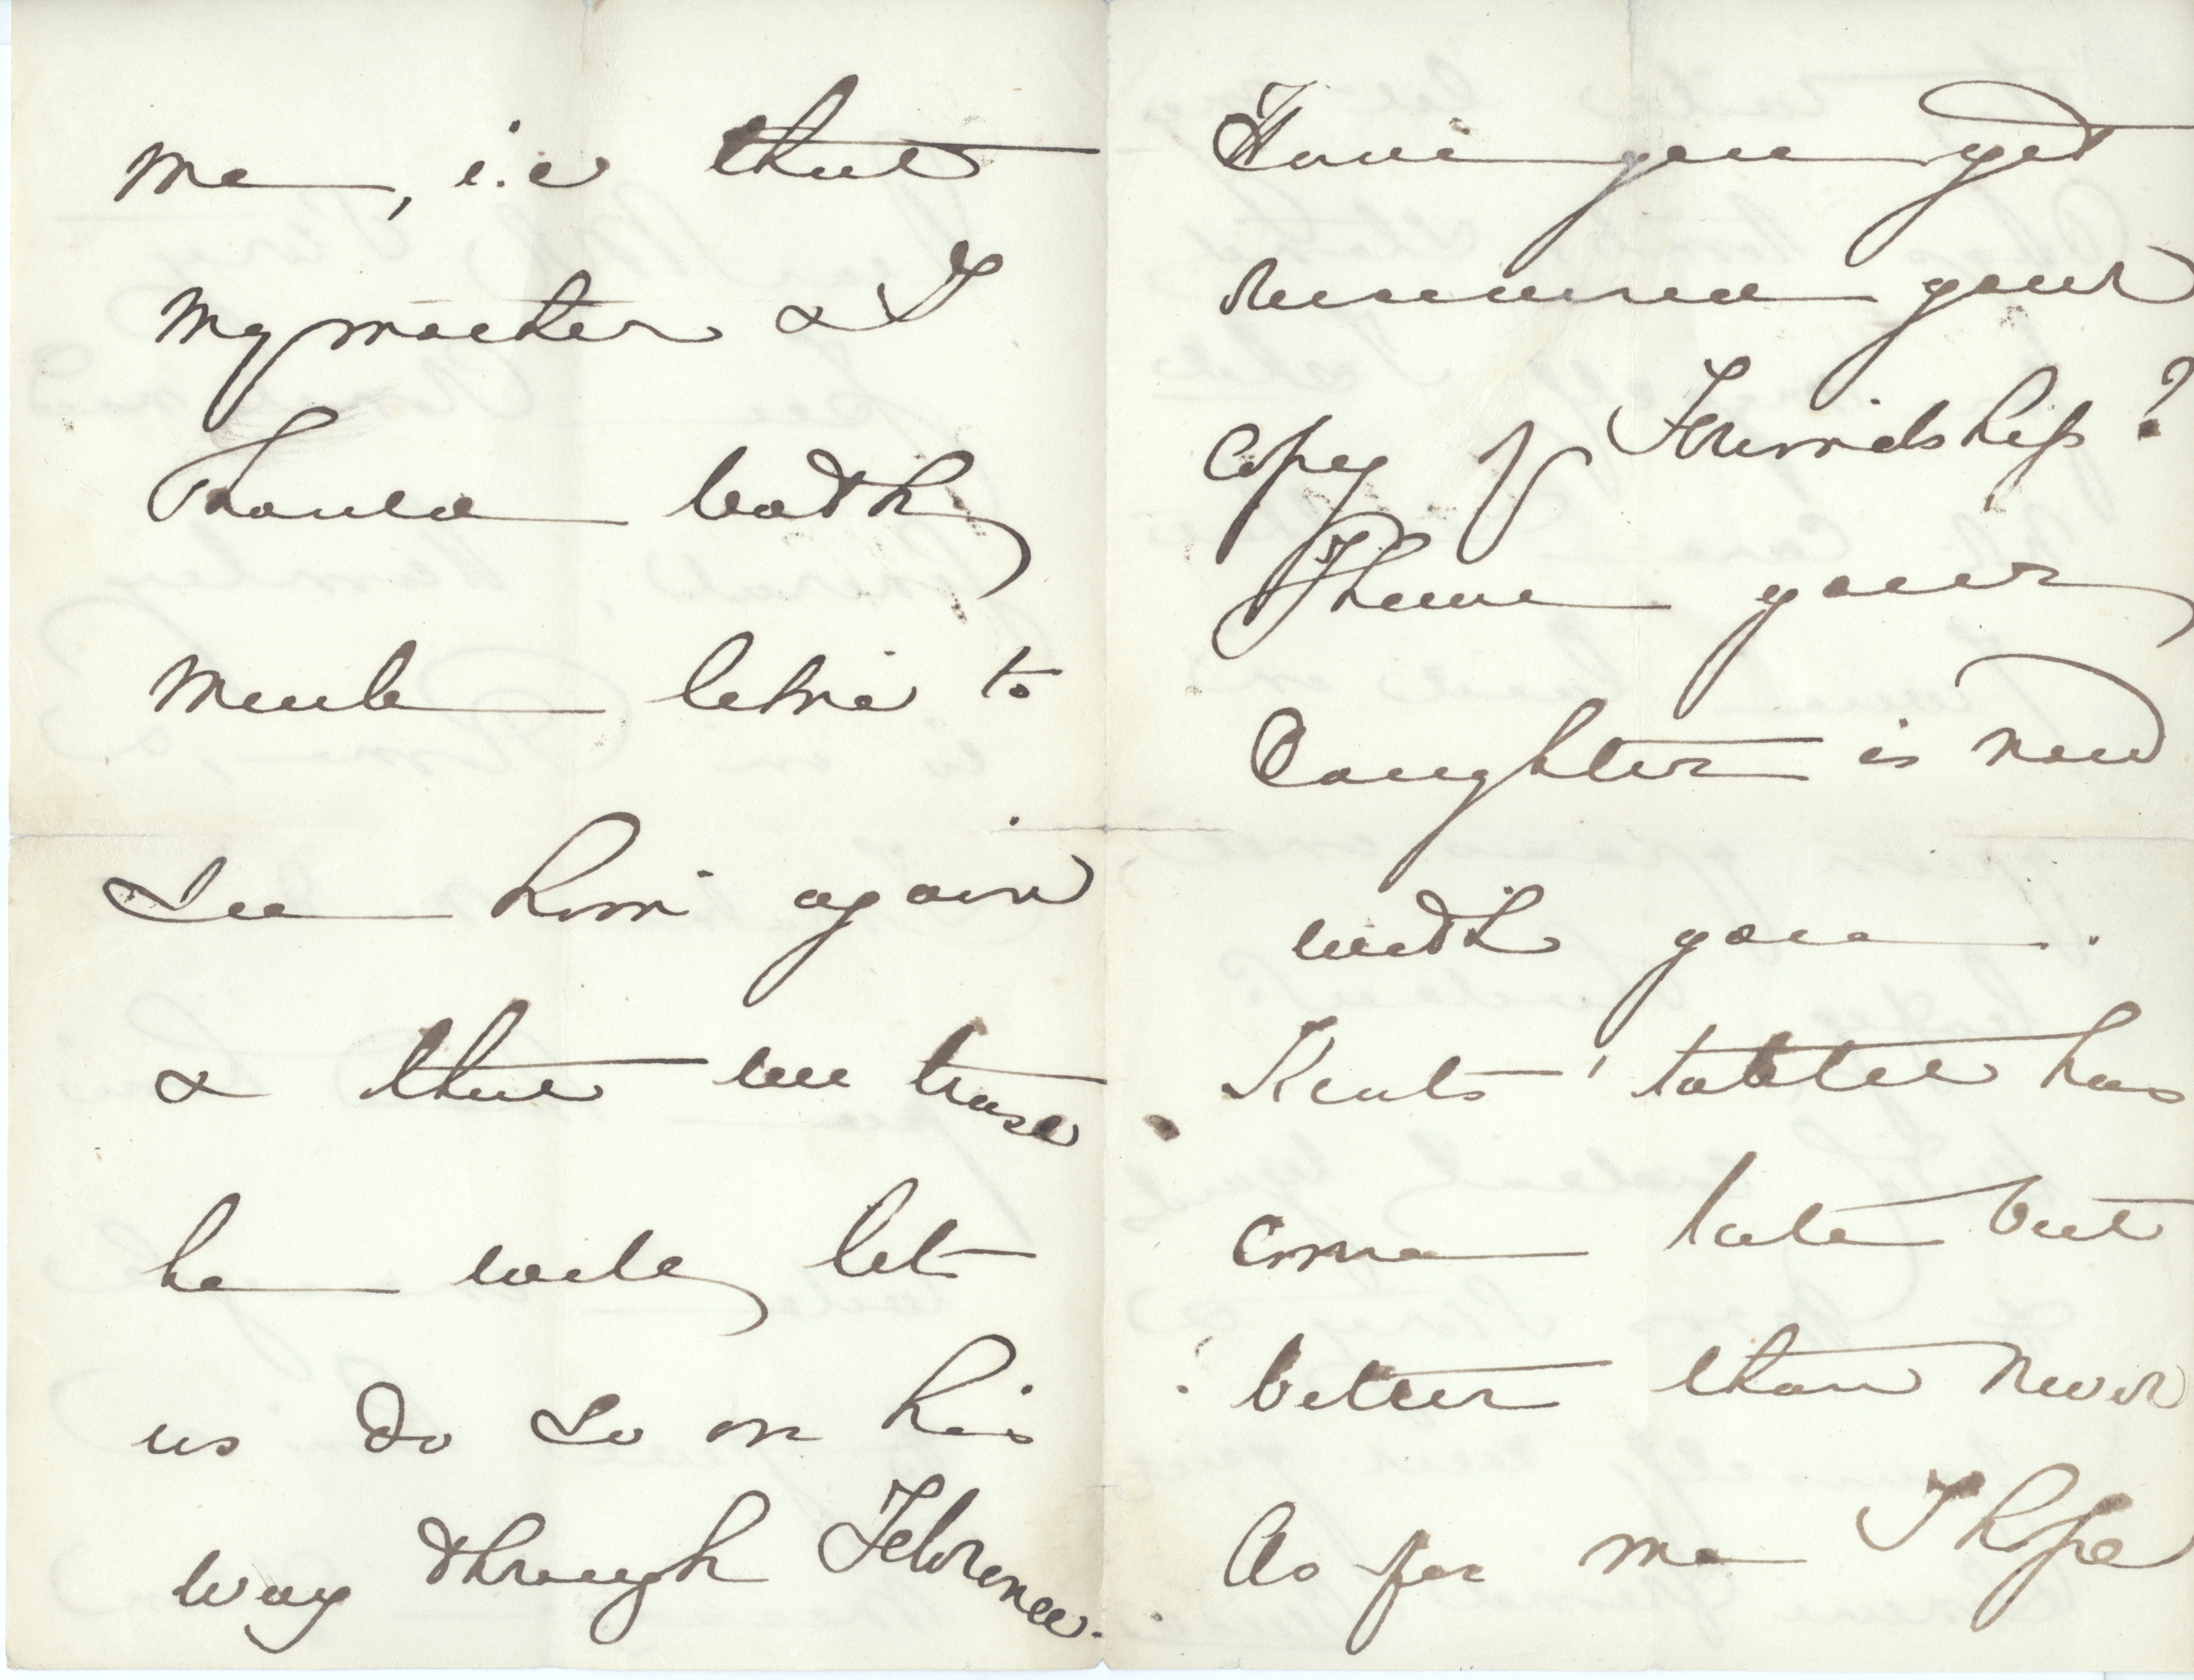 me, i.e that
my mother & I
should both
much like to
see him again
& that we trust
he will let
us do so on his
way through Florence.
Have you yet
received your
copy of Friendship?
I hear your
daughter is now
with you.
Kents' tablet has
come late but
better than never
As for me I hope